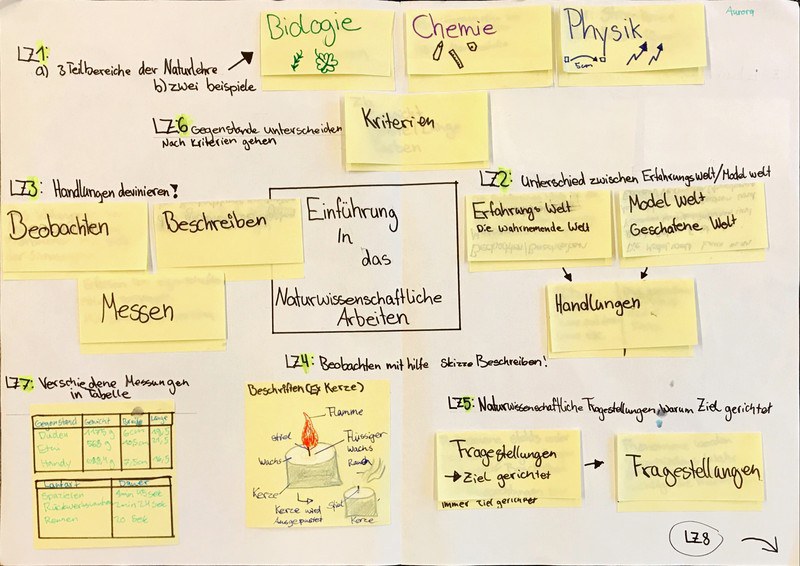 Aurora
LZ1:
a) 3 Teilbereiche der Naturlehre
b) zwei beispiele
Biologie
Chemie
Physik
5cm
LZ6 Gegenstände unterscheiden
Nach Kriterien gehen
Kriterien
LZ3: Handlungen devinieren!
Beobachten
Beschreiben
Messen
Einführung
In
das
Naturwissenschaftliche
Arbeiten
LZ2: Unterschied zwischen Erfahrungswelt/Model welt
Erfahrungs Welt
Die Wahrnemende Welt
Model Welt
Geschafene Welt
Handlungen
LZ7: Verschiedene Messungen
in Tabelle
Gegenstand Gewicht Breite Länge
Etui
Handy
Laufart Dauer
Spazieren
Rennen 20 sek
LZ4: Beobachten mit hilfe skizze Beschreiben!
Beschriften (Ex Kerze)
Flamme
Flüssiger
Wachs
Wachs
Rauch
Kerze
Kerze wird
Ausgepustet
Kerze
LZ5: Naturwissenschaftliche Fragestellungen, Warum Ziel gerichtet
Fragestellungen
→ Ziel gerichtet
immer Ziel gerichtet
Fragestellungen
LZ8